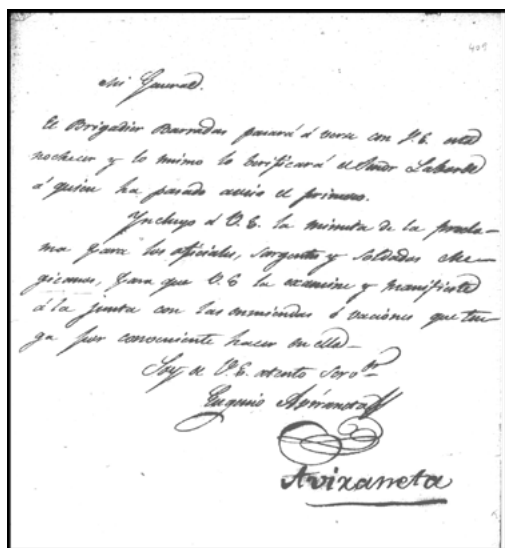 409
Mi General.
El Brigadier Barradas pasará á verse con V.E. este
nochecer y lo mismo lo berificará el Señor Laborde
á quien ha pasado aviso el primero.
Yncluyo á V.E. la minuta de la procla-
ma para los oficiales, sargentos y soldados Me-
gicanos, para que V.E la examine y manifieste
á la junta con las enmiendas ó vaciones que ten-
ga por conveniente hacer en ella-
Soy de V.E. atento Serv.or
Eugenio Aviraneta
Aviraneta